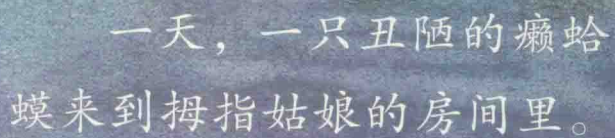 一天，一只丑陋的癞蛤
蟆来到拇指姑娘的房间里。